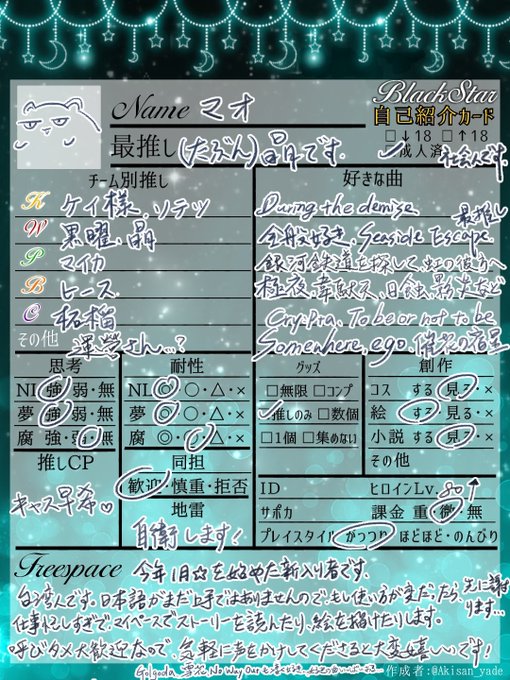 BlackStar
自己紹介カード
□↓18 □↑18
□成人済 社会人です
Name マオ
最推し (たぶん) 晶です.
チーム別推し
K ケイ様、ソテツ
W 黒曜、晶
P マイカ
B ヒース
C 柘榴
その他 運営さん…?
好きな曲
During the demise 最推し
全般大好き、Seaside Escape.
銀河鉄道を探して、虹の彼方へ
極夜、日蝕、など
CryPra, To be or not to be
Somewhere, ego, 催花の宿星
思考
NL 強・弱・無
夢 強・弱・無
腐 強・弱・無
推しCP
キャス早希♡
耐性
NL ◎・○・△・×
夢 ◎・○・△・×
腐 ◎・○・△・×
同担
歓迎・慎重・拒否
地雷
自衛します!
グッズ
□無限 □コンプ
□推しのみ □数個
□1個 □集めない
創作
コス する・見る・×
絵 する・見る・×
小説 する・見る・×
その他
ID ヒロインLv. 80↑
サポカ 課金 重・微・無
プレイスタイル がっつり・ほどほど・のんびり
Freespace 今年1月☆を始めた新入り者です.
台湾人です。日本語がまだ上手ではありませんので、もし使い方が変だったら、先に謝ります…
仕事しすぎで、マイペースでストーリーを読んだり、絵を描けたりします。
呼びタメ大歓迎なので、気軽に声をかけてくださると大変嬉しいです!
Golgoda, 雪花, No Way Out
作成者:@Akisan_yade